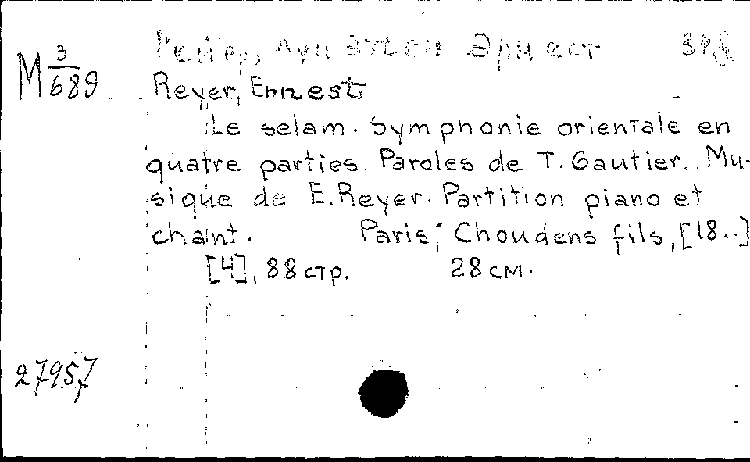 M 3/689
Рейер, Луи Этьен Эрнест
Reyer, Ernest
Le selam. Symphonie orientale en
quatre parties. Paroles de T. Gautier. Mu-
sique de E. Reyer. Partition piano et
chant. Paris, Choudens fils, [18..]
[4], 88 стр. 28 см.
27957